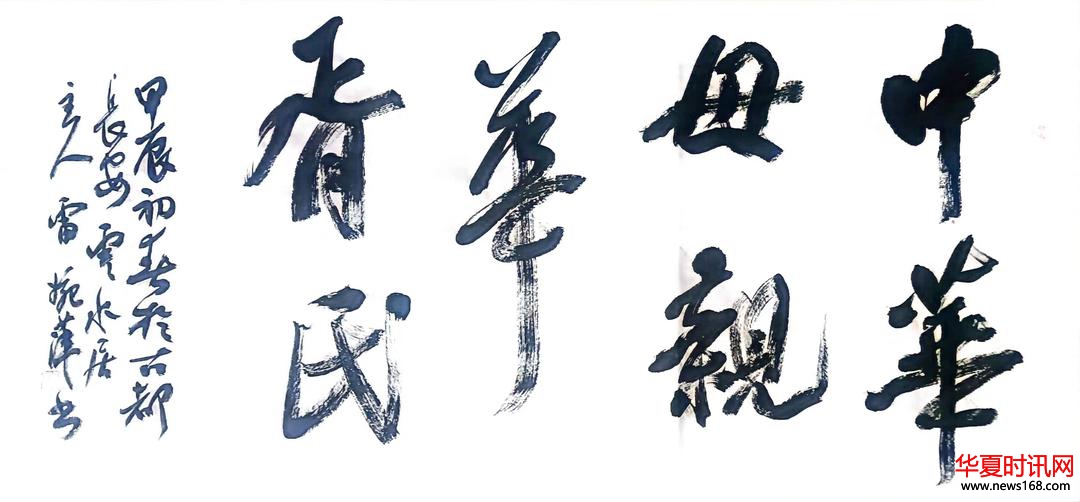 中華
母親
華
胥民
甲辰初春於古都
長安雲水居
主人雷書
华夏时讯网
www.news168.com